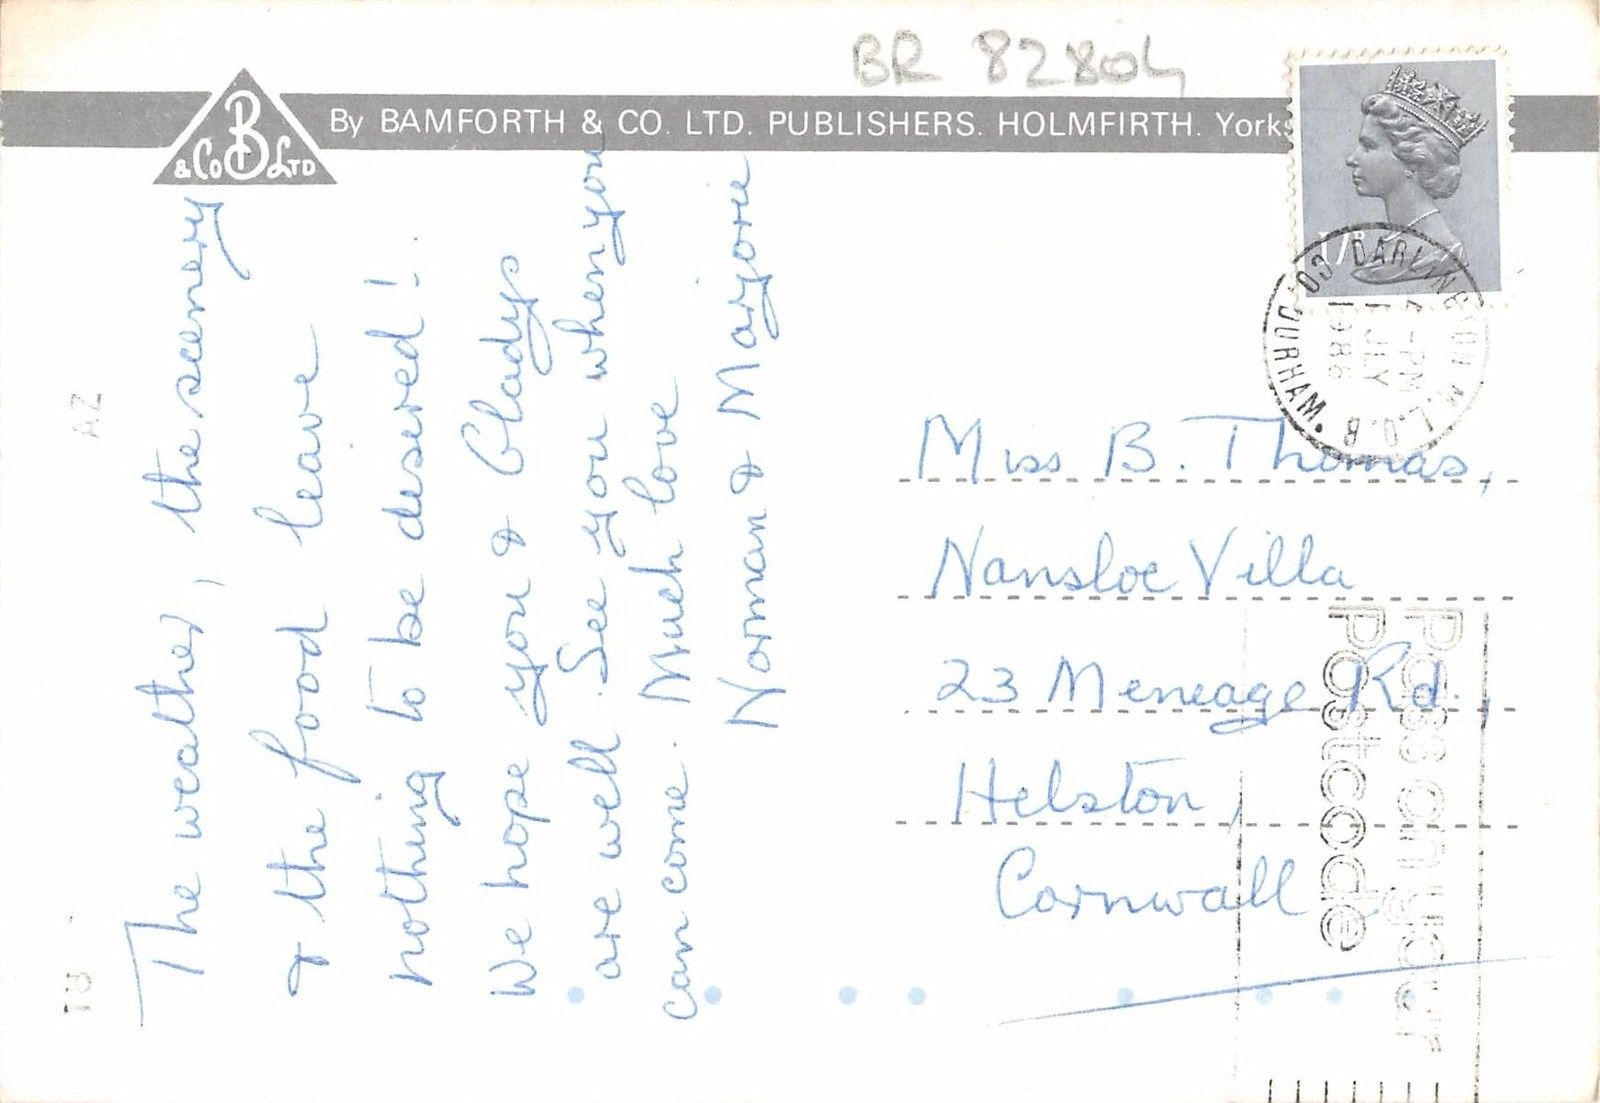 BR 82804
B
& Co LTD
By BAMFORTH & CO. LTD. PUBLISHERS. HOLMFIRTH. Yorks
17P
DARLINGTON M.L.O. B
CO. DURHAM.
-PM
1 JLY
1986
The weather, the scenery
& the food leave
nothing to be desired!
We hope you & Gladys
are well. See you when you
can come. Much love
Norman & Marjorie
Miss B. Thomas,
Nansloe Villa
23 Meneage Rd.,
Helston,
Cornwall
Pass on your
Postcode
AZ